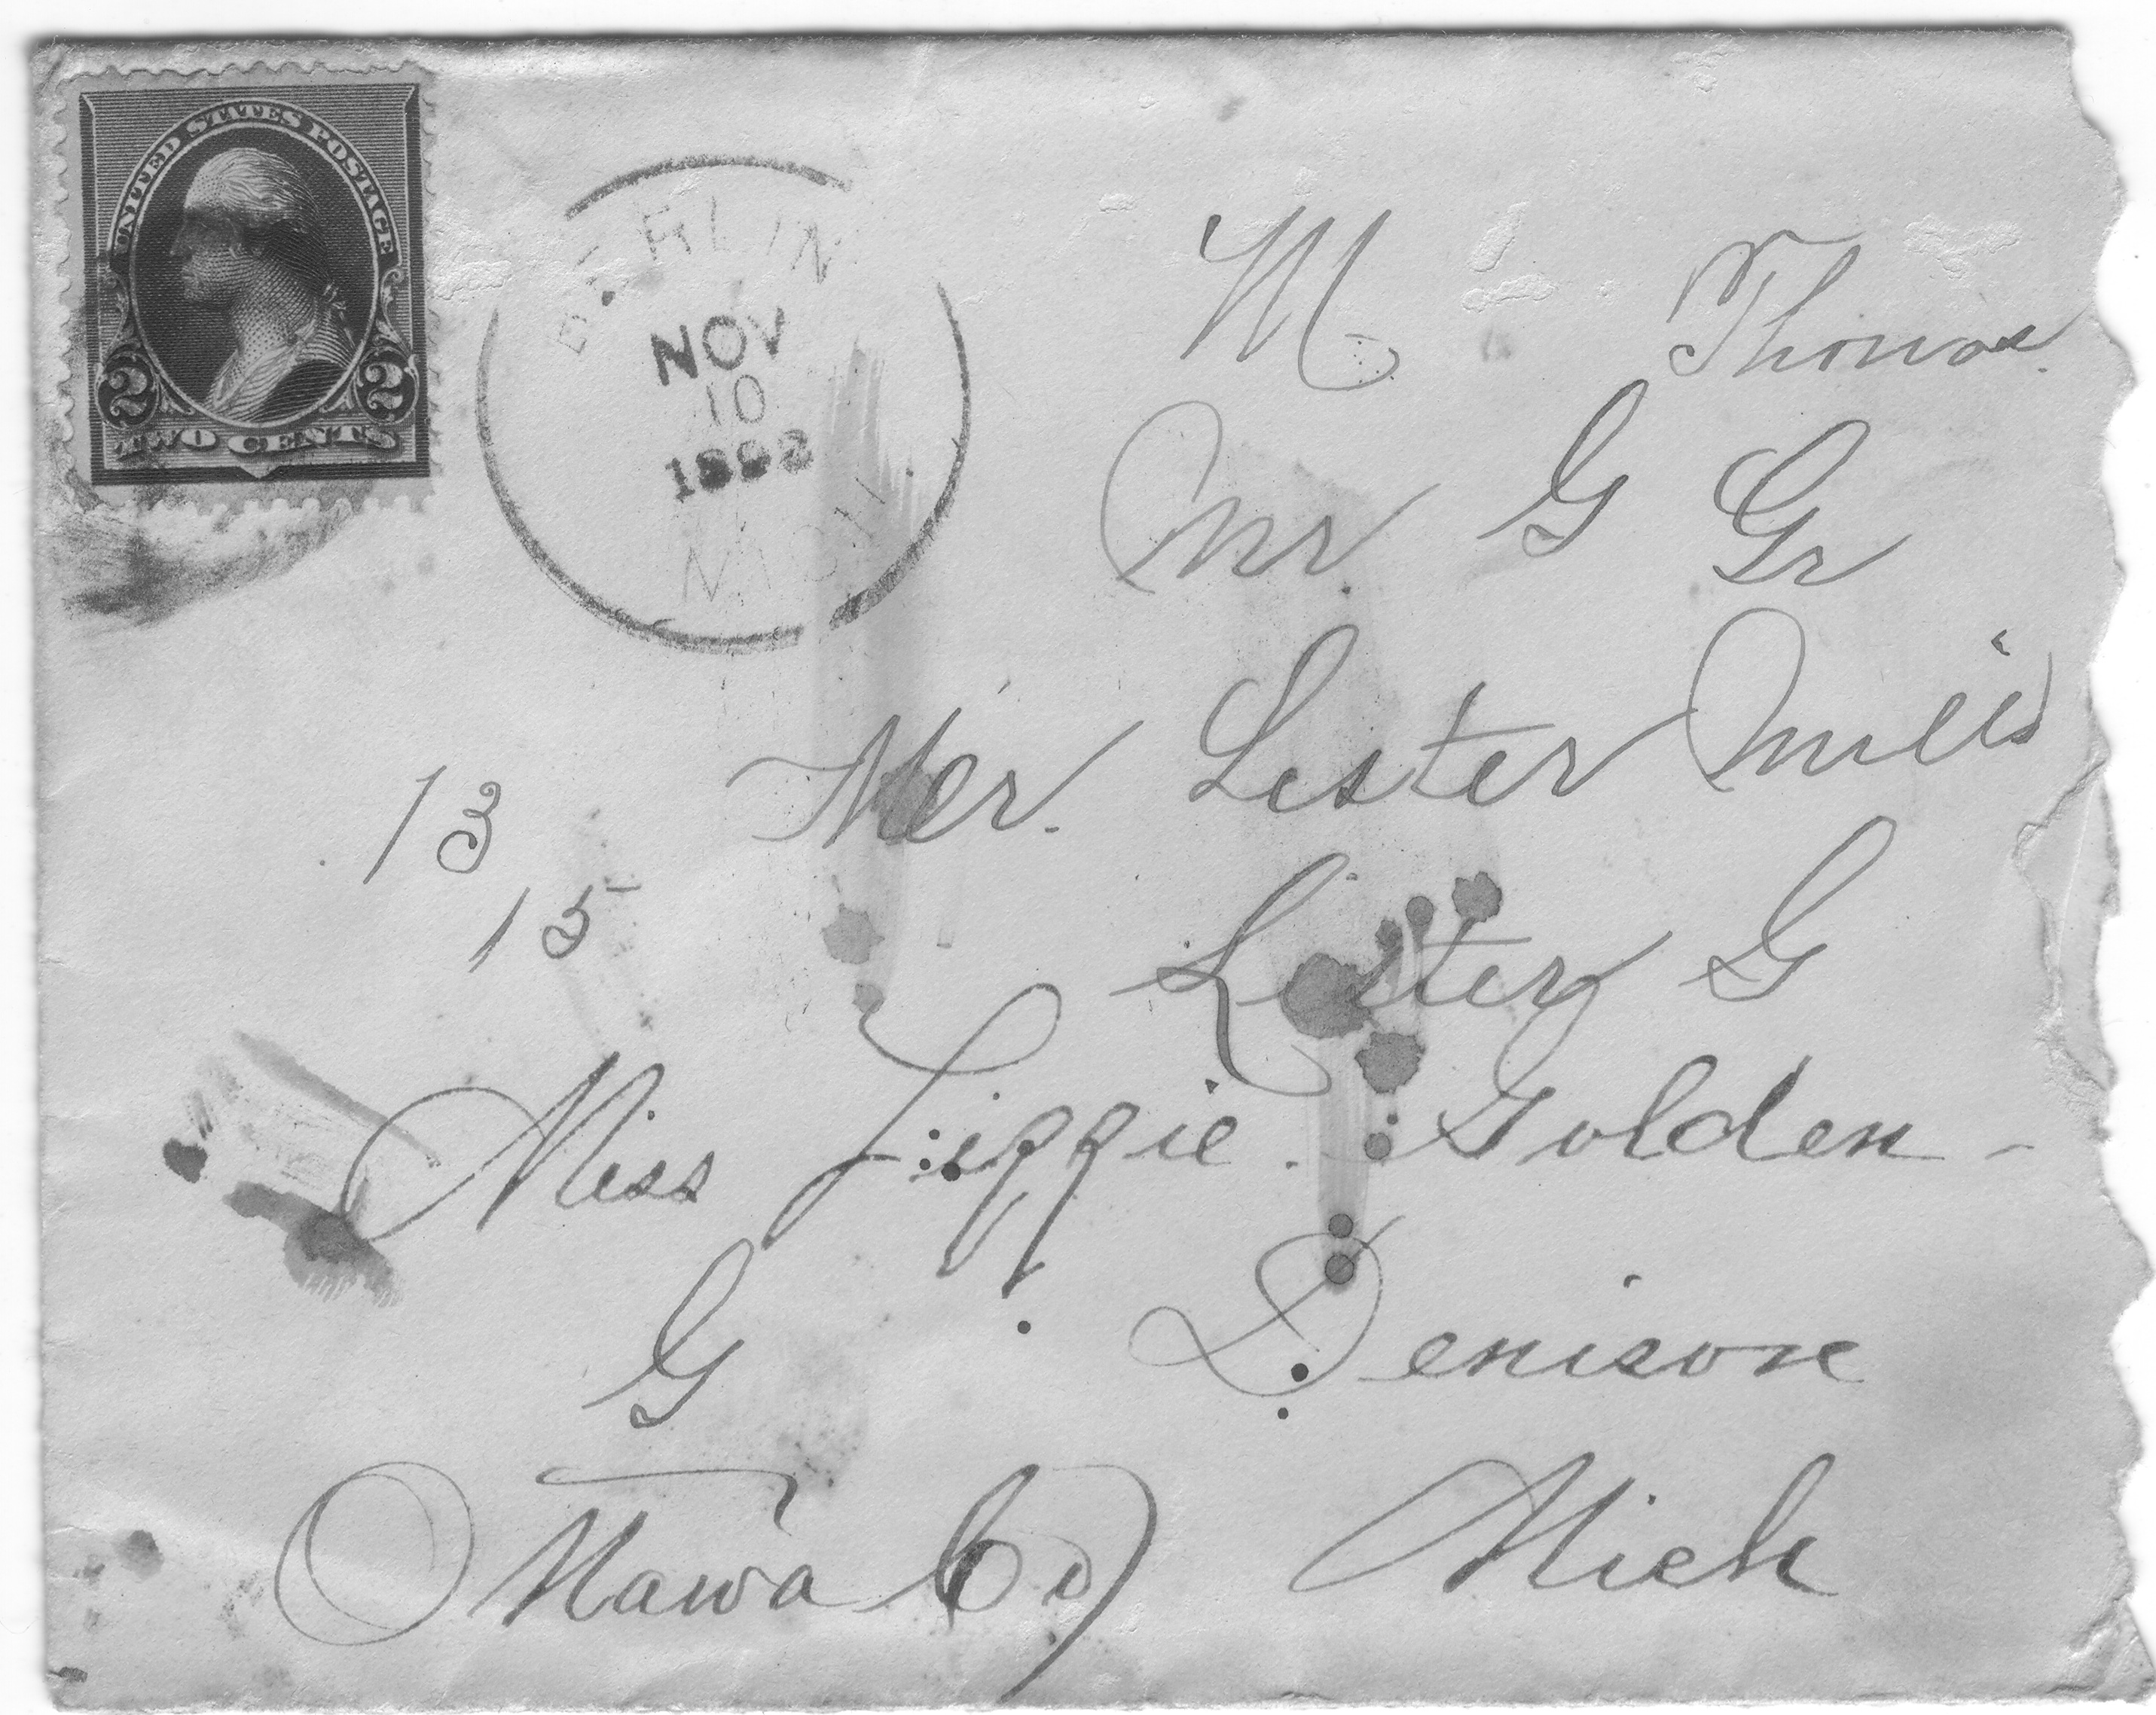 UNITED STATES POSTAGE
2 2
TWO CENTS
BERLIN
NOV
10
1892
MICH.
M Thomas
Mr G Gr
Mr. Lester Mills
13
Lester G
15
Miss Lizzie Golden
G Denison
Ottawa Co Mich